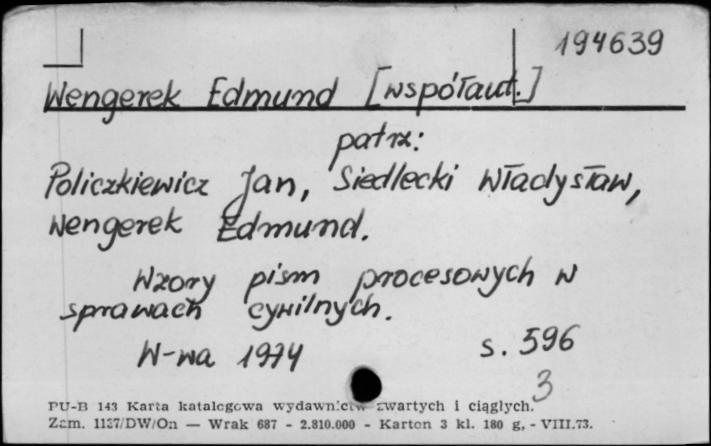 194639
Wengerek Edmund [współaut.]
patrz:
Policzkiewicz Jan, Siedlecki Władysław,
Wengerek Edmund.
Wzory pism procesowych w
sprawach cywilnych.
W-wa 1974
s. 596
3
PU-B 143 Karta katalogowa wydawnictw zwartych i ciągłych.
Zam. 1137/DW/On — Wrak 687 - 2.810.000 - Karton 3 kl. 180 g, - VIII.73.